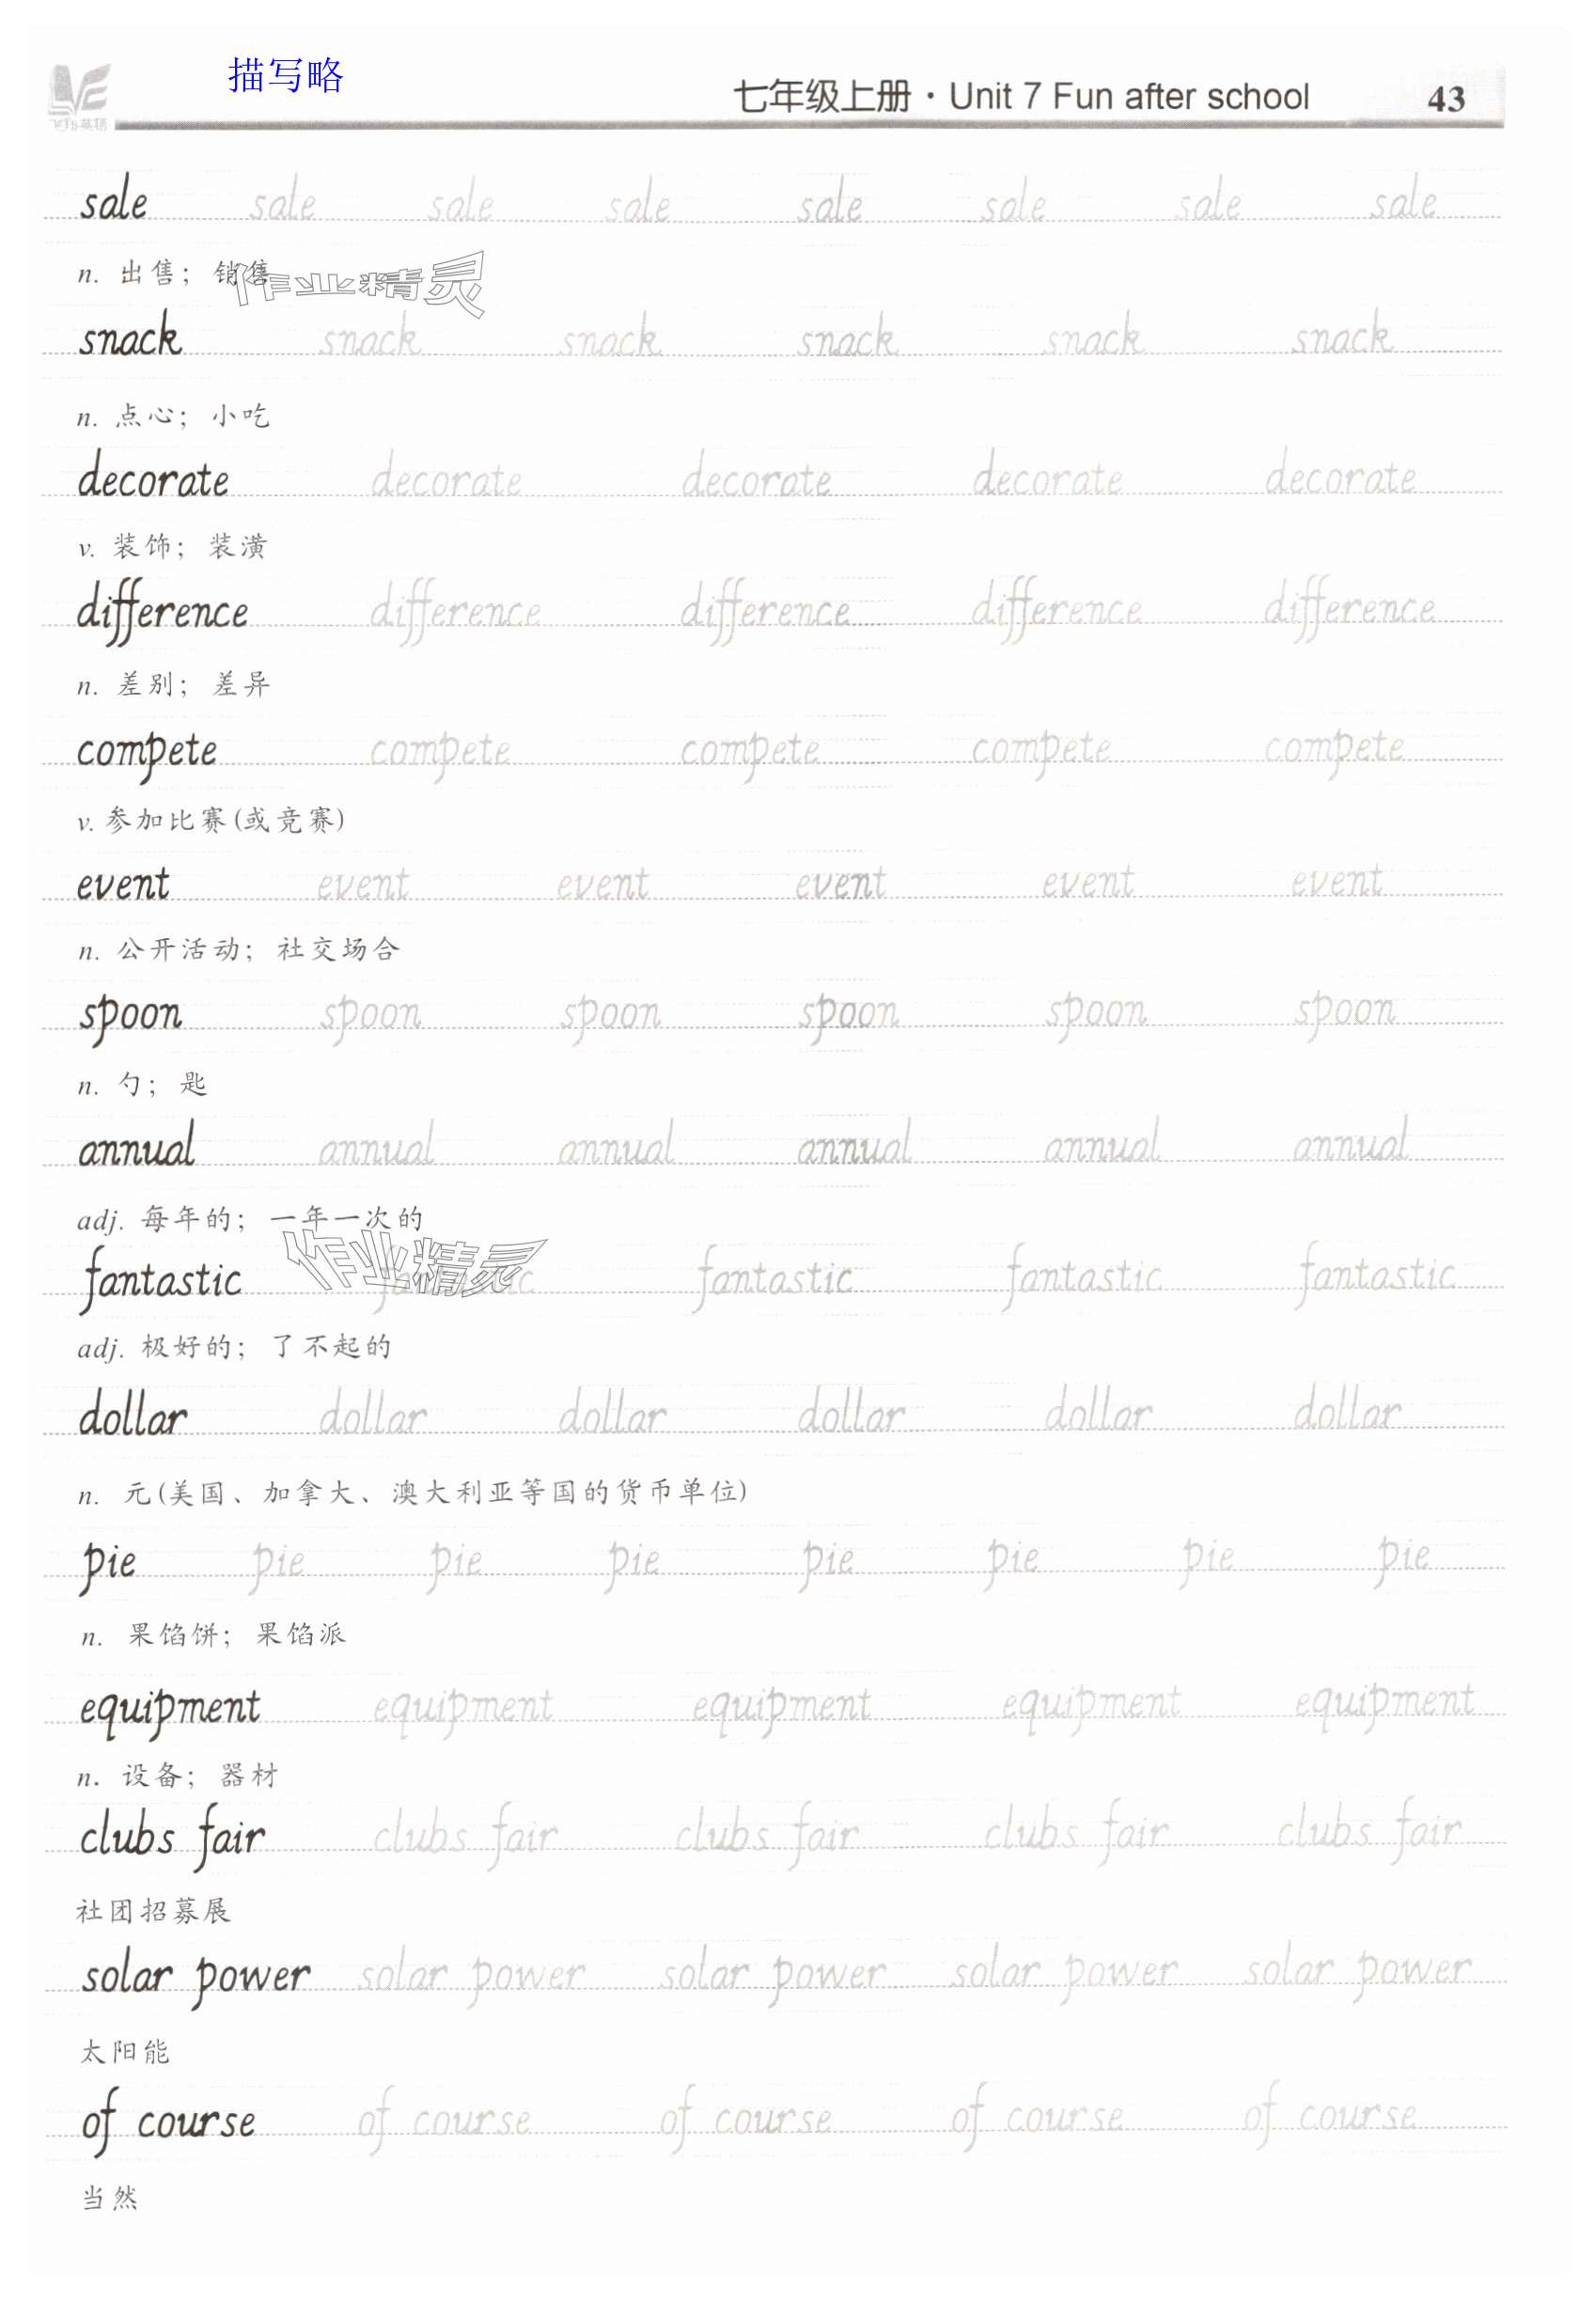 描写略
七年级上册·Unit 7 Fun after school 43
sale sale sale sale sale sale sale sale
n. 出售；销售
作业精灵
snack snack snack snack snack snack
n. 点心；小吃
decorate decorate decorate decorate decorate
v. 装饰；装潢
difference difference difference difference difference
n. 差别；差异
compete compete compete compete compete
v. 参加比赛(或竞赛)
event event event event event event
n. 公开活动；社交场合
spoon spoon spoon spoon spoon spoon
n. 勺；匙
annual annual annual annual annual annual
adj. 每年的；一年一次的
作业精灵
fantastic fantastic fantastic fantastic fantastic
adj. 极好的；了不起的
dollar dollar dollar dollar dollar dollar
n. 元(美国、加拿大、澳大利亚等国的货币单位)
pie pie pie pie pie pie pie pie
n. 果馅饼；果馅派
equipment equipment equipment equipment equipment
n. 设备；器材
clubs fair clubs fair clubs fair clubs fair clubs fair
社团招募展
solar power solar power solar power solar power solar power
太阳能
of course of course of course of course of course
当然